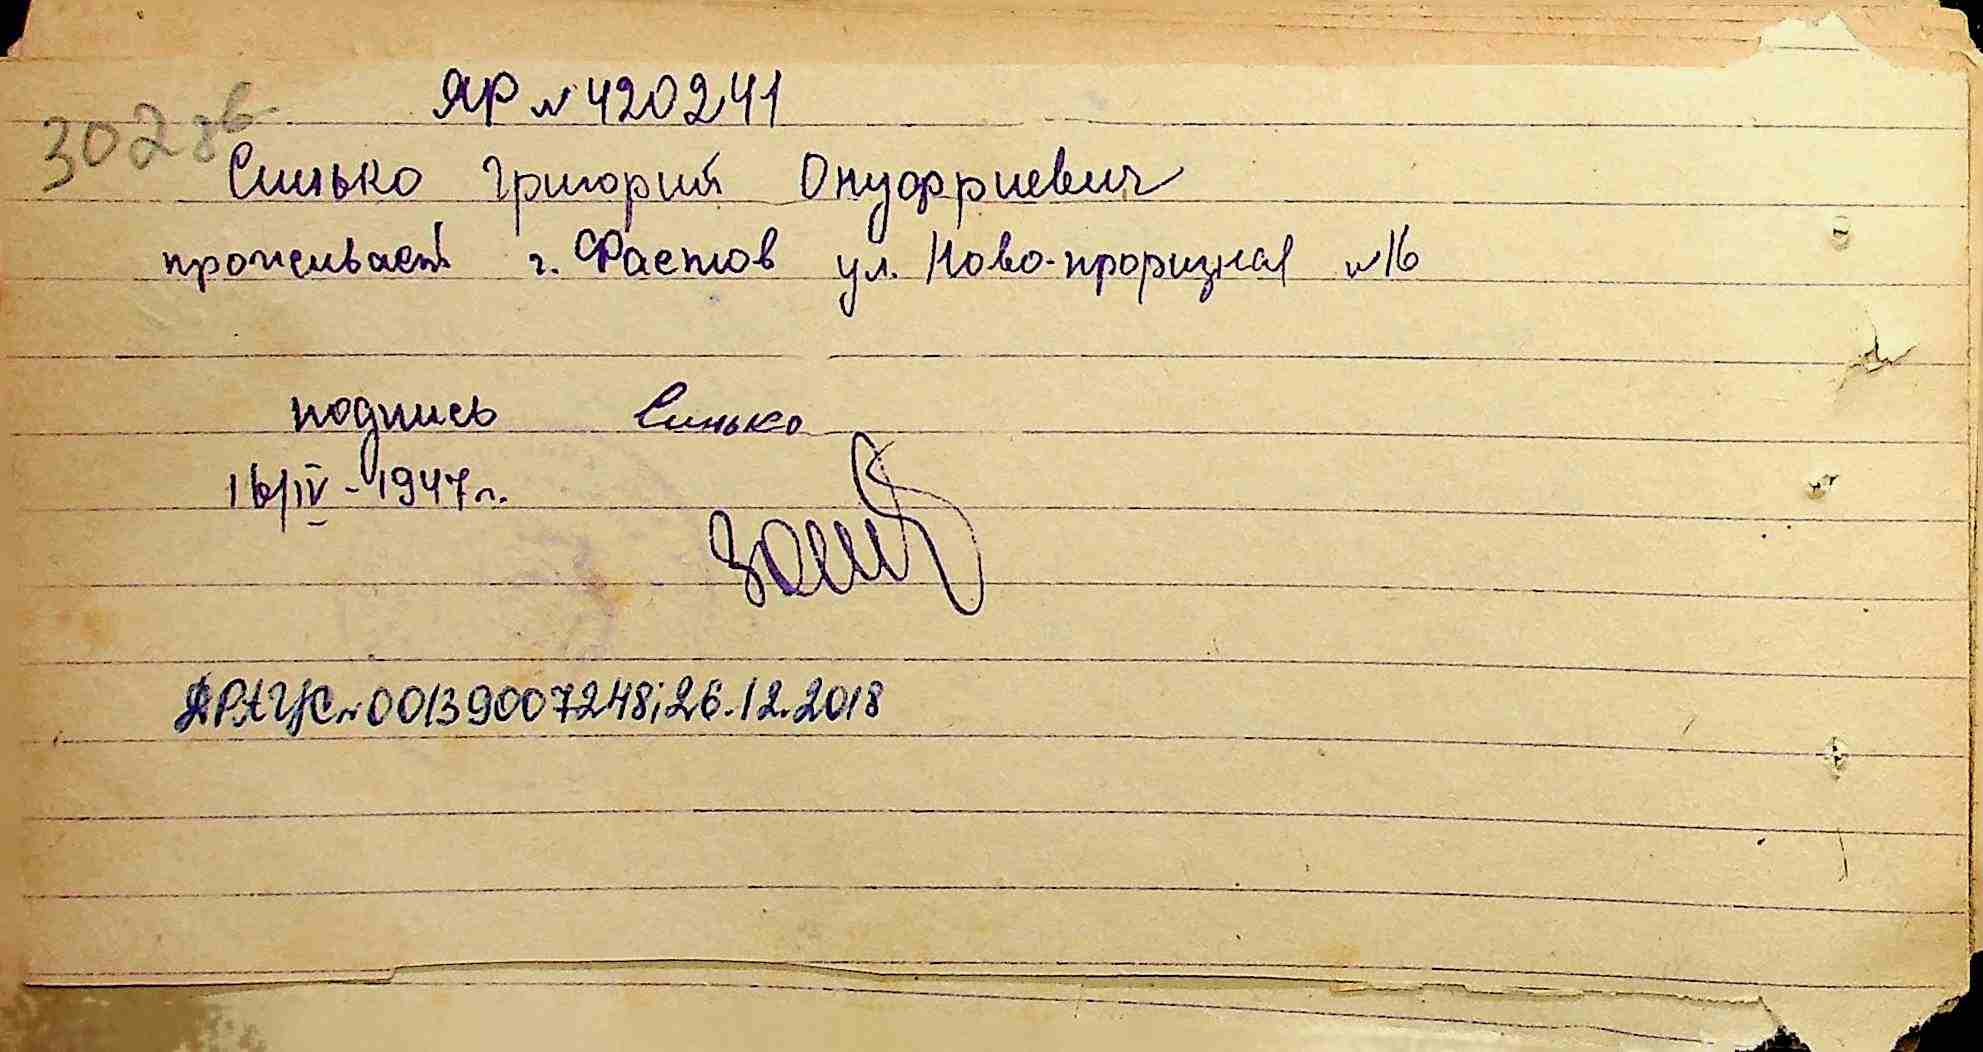 302 зв
ЯР № 420241
Синько Григорий Онуфриевич
проживает г. Фастов ул. Ново-проризная № 16
подпись Синько
16/IV - 1947 г.
ДРАЦС № 00139007248; 26.12.2018